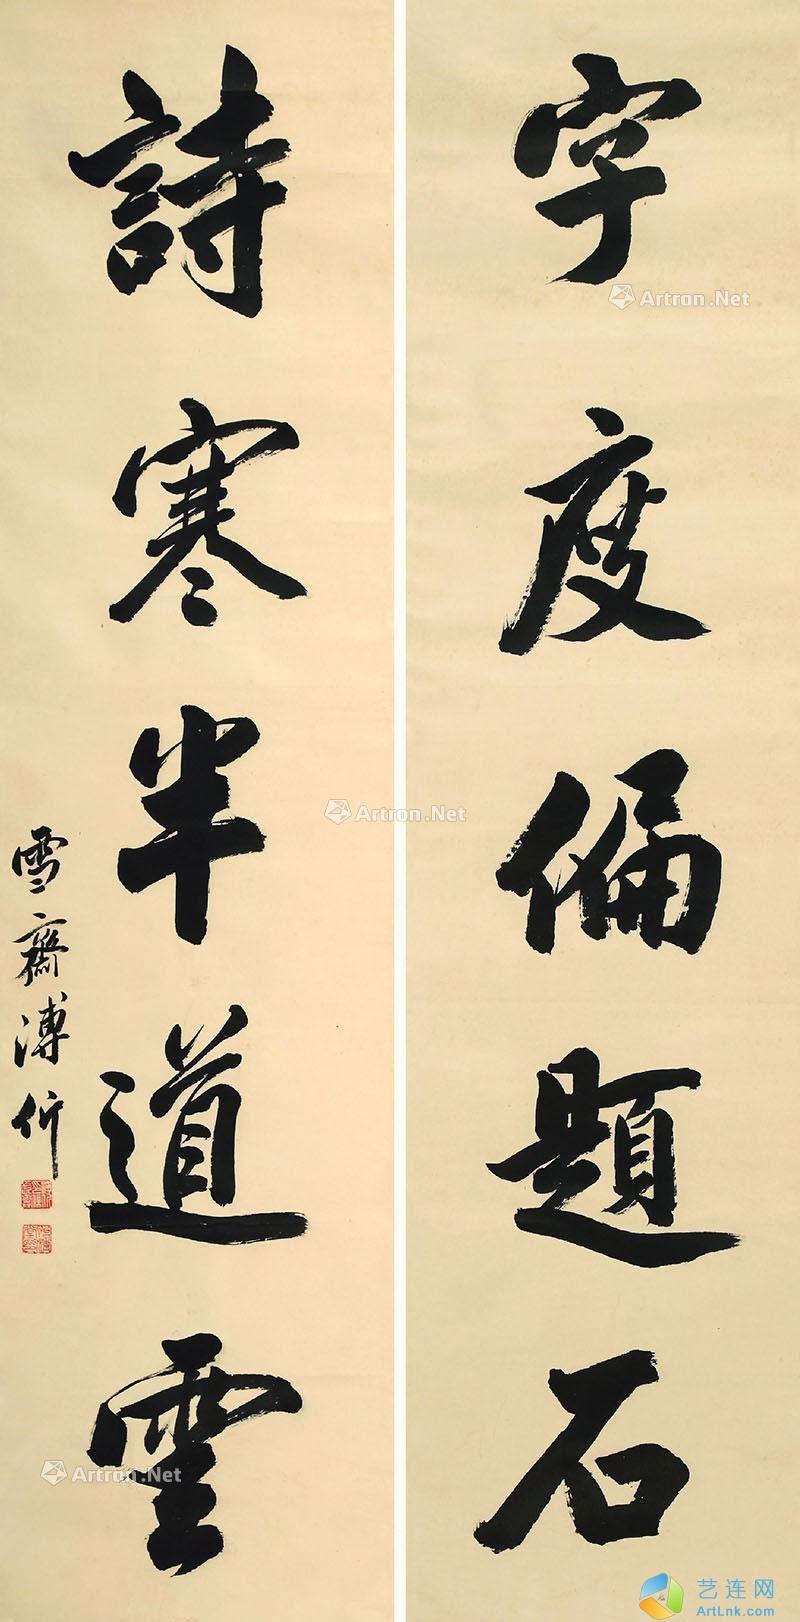 字度偏題石
詩寒半道雲
雪齋溥伒
Artron.Net
Artron.Net
Artron.Net
艺连网
ArtLnk.com